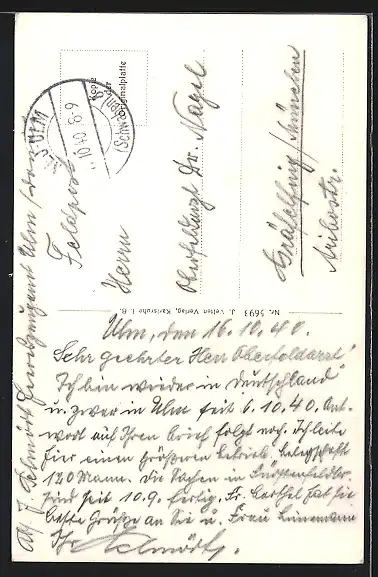 Kopie
der
Originalplatte
ULM
(Schwaben)
10.40. 8-9
Feldpost
Herrn
Oberfeldarzt Dr. Nagel
Gräfelfing / München
Nr. 5693 J. Velten Verlag, Karlsruhe i. B.
Ulm, den 16.10.40.
Sehr geehrter Herr Oberfeldarzt!
Ich bin wieder in Deutschland
u. zwar in Ulm seit 6.10.40. Ant-
wort auf Ihren Brief folgt noch. Ich leite
hier einen größeren Betrieb. Belegschaft
120 Mann. Die Sachen in Fürstenfeldbr.
sind seit 10.9. fertig. Fr. hat sie
beste Grüße an Sie u. Frau
Ihr Schmidt.
Abs. J. Schmidt Ulm / Donau